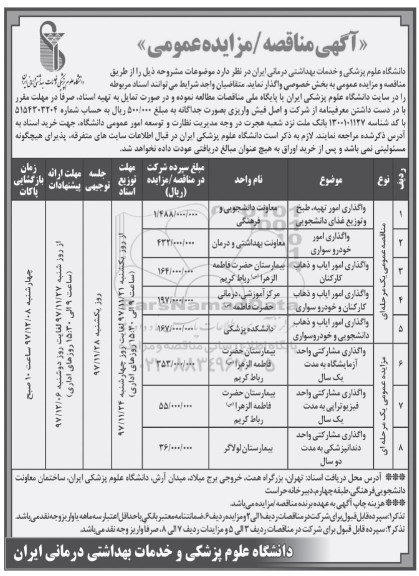 «آگهی مناقصه/مزایده عمومی»
دانشگاه علوم پزشکی و خدمات بهداشتی درمانی ایران در نظر دارد موضوعات مشروحه ذیل را از طریق
مناقصه و مزایده عمومی به بخش خصوصی واگذار نماید. متقاضیان واجد شرایط می توانند اسناد مربوطه
را در سایت دانشگاه علوم پزشکی ایران یا پایگاه ملی مناقصات مطالعه نموده و در صورت تمایل به تهیه اسناد، صرفاً در مهلت مقرر
با در دست داشتن معرفینامه از شرکت و اصل فیش واریزی بصورت جداگانه به مبلغ ۵۰۰/۰۰۰ ریال به حساب شماره
با کد شناسه بانک ملت نزد شعبه هجرت در وجه مدیریت نظارت و توسعه امور عمومی دانشگاه، جهت خرید اسناد به
آدرس ذکرشده مراجعه نمایند. لازم به ذکر است دانشگاه علوم پزشکی ایران در قبال اطلاعات سایت های متفرقه، پذیرای هیچگونه
مسئولیتی نمی باشد و پس از خرید اوراق به هیچ عنوان مبالغ دریافتی عودت داده نخواهد شد.
ردیف نوع موضوع نام واحد مبلغ سپرده شرکت در مناقصه/مزایده (ریال) مهلت توزیع اسناد جلسه توجیهی مهلت ارائه پیشنهادات زمان بازگشایی پاکات
مناقصه عمومی یک مرحله ای
۱ واگذاری امور تهیه، طبخ و توزیع غذای دانشجویی معاونت دانشجویی و فرهنگی ۱/۴۸۸/۰۰۰/۰۰۰
۲ واگذاری امور خودرو سواری معاونت بهداشتی و درمان ۴۳۲/۰۰۰/۰۰۰
۳ واگذاری امور ایاب و ذهاب کارکنان بیمارستان حضرت فاطمه الزهرا رباط کریم ۱۶۴/۰۰۰/۰۰۰
۴ واگذاری امور ایاب و ذهاب کارکنان و خودرو سواری مرکز آموزشی، درمانی حضرت فاطمه ۱۹۷/۰۰۰/۰۰۰
۵ واگذاری امور ایاب و ذهاب دانشجویی و خودرو سواری دانشکده پزشکی ۱۶۷/۰۰۰/۰۰۰
مزایده عمومی یک مرحله ای
واگذاری مشارکتی واحد آزمایشگاه به مدت یک سال بیمارستان حضرت فاطمه الزهرا رباط کریم ۳۵۳/۰۰۰/۰۰۰
۷ واگذاری مشارکتی واحد فیزیوتراپی به مدت یک سال بیمارستان حضرت فاطمه الزهرا رباط کریم ۵۵/۰۰۰/۰۰۰
۸ واگذاری مشارکتی واحد دندانپزشکی به مدت دو سال بیمارستان لولاگر ۳۶/۰۰۰/۰۰۰
از روز یکشنبه ۹۷/۱۱/۲۱ لغایت روز چهارشنبه ۹۷/۱۱/۲۴ (ساعت ۹ الی ۱۵:۳۰ روزهای اداری)
روز یکشنبه ۹۷/۱۱/۲۸
از روز شنبه ۹۷/۱۱/۲۷ لغایت روز دوشنبه ۹۷/۱۲/۰۶ (ساعت ۹ الی ۱۵:۳۰ روزهای اداری)
چهارشنبه ۹۷/۱۲/۰۸ ساعت ۱۰ صبح
آدرس محل دریافت اسناد: تهران، بزرگراه همت، خروجی برج میلاد، میدان آرش، دانشگاه علوم پزشکی ایران، ساختمان معاونت
دانشجویی فرهنگی، طبقه چهارم، دبیرخانه حراست
هزینه چاپ آگهی به عهده برنده مناقصه/مزایده می باشد.
تذکر۱: سپرده قابل قبول برای شرکت در مناقصات ردیف ۱ الی ۲ و مزایده ردیف ۶، ضمانتنامه معتبر بانکی با حداقل اعتبار سه ماهه یا واریز وجه نقد می باشد.
تذکر۲: سپرده قابل قبول برای شرکت در مناقصات ردیف ۳ الی ۵ و مزایدات ردیف ۷ الی ۸، صرفاً واریز وجه نقد می باشد.
دانشگاه علوم پزشکی و خدمات بهداشتی درمانی ایران